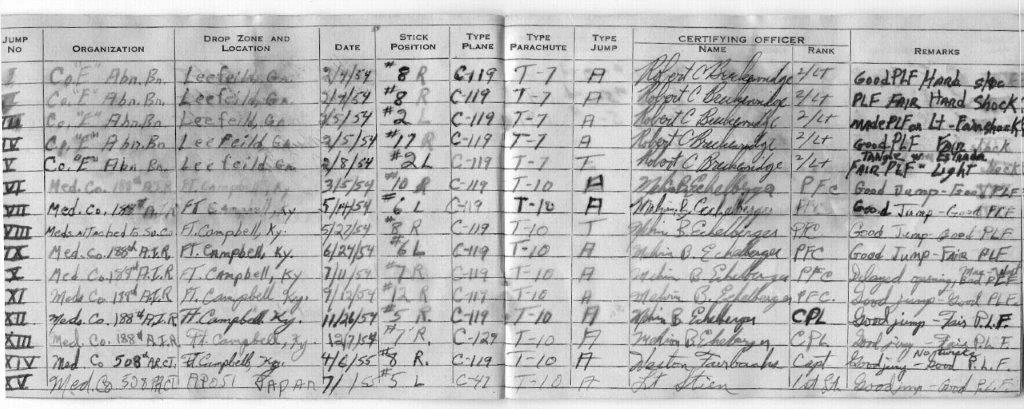 JUMP NO ORGANIZATION DROP ZONE AND LOCATION DATE STICK POSITION TYPE PLANE TYPE PARACHUTE TYPE JUMP CERTIFYING OFFICER NAME RANK REMARKS
I Co. "E" Abn. Bn. Leefeild, Ga. 2/4/54 #8 R C-119 T-7 A Robert C Breckenridge 2/Lt Good PLF Hard
II Co. "E" Abn. Bn. Leefeild, Ga. 2/4/54 #8 R C-119 T-7 A Robert C Breckenridge 2/Lt PLF FAIR Hard Shock
III Co. "E" Abn. Bn. Leefeild, Ga. 2/5/54 #2 L C-119 T-7 A Robert C Breckenridge 2/Lt made PLF on Lt - Fair shock
IV Co. "E" Abn. Bn. Leefeild, Ga. 2/5/54 #17 R C-119 T-7 A Robert C Breckenridge 2/Lt Good PLF Fair
V Co. "E" Abn. Bn. Leefeild, Ga. 2/8/54 #2 L C-119 T-7 T Robert C Breckenridge 2/Lt TANGLE w Estrada FAIR PLF - Light
VI Med. Co. 188th A.I.R. Ft. Campbell, Ky 3/5/54 #10 R C-119 T-10 A Melvin B. Echelberger PFc Good Jump - Good PLF
VII Med. Co. 188th A.I.R Ft Campbell, Ky 5/14/54 #6 L C-119 T-10 A Melvin B. Echelberger PFC Good Jump - Good PLF
VIII Meds attached to Sv. Co Ft. Campbell, Ky. 5/27/54 #8 R C-119 T-10 T Melvin B. Echelberger PFC Good Jump - Good PLF
IX Med. Co. 188th A.I.R. Ft. Campbell, Ky 6/29/54 #6 L C-119 T-10 A Melvin B. Echelberger PFC Good Jump - Fair PLF
X Med Co. 188th A.I.R Ft. Campbell, Ky 7/11/54 #7 R C-119 T-10 A Melvin B. Echelberger PFC Delayed opening, Bad PLF
XI Meds Co. 188th A.I.R Ft. Campbell Ky. 9/12/54 #12 R C-119 T-10 A Melvin B. Echelberger PFC. Good jump - Good PLF
XII Meds. Co. 188th A.I.R Ft. Campbell Ky. 11/26/54 #5 R. C-119 T-10 A Melvin B Echelberger CPL Good jump - Fair P.L.F.
XIII Med. Co. 188th A.I.R. Ft. Campbell, Ky 12/7/54 #7 R. C-129 T-10 A Melvin B. Echelberger, CPL Good jump - Fair PLF
XIV Med Co 508th ARCT. Ft. Campbell, Ky. 4/6/55 #8 R. C-119 T-10 A Weston Fairbanks Capt Good jump - Good P.L.F.
XV Med. Co 508 ARCT APO 51 JAPAN 7/1/55 #5 L C-47 T-10 A Lt Stien 1st Lt. Good jump - Good P.L.F.